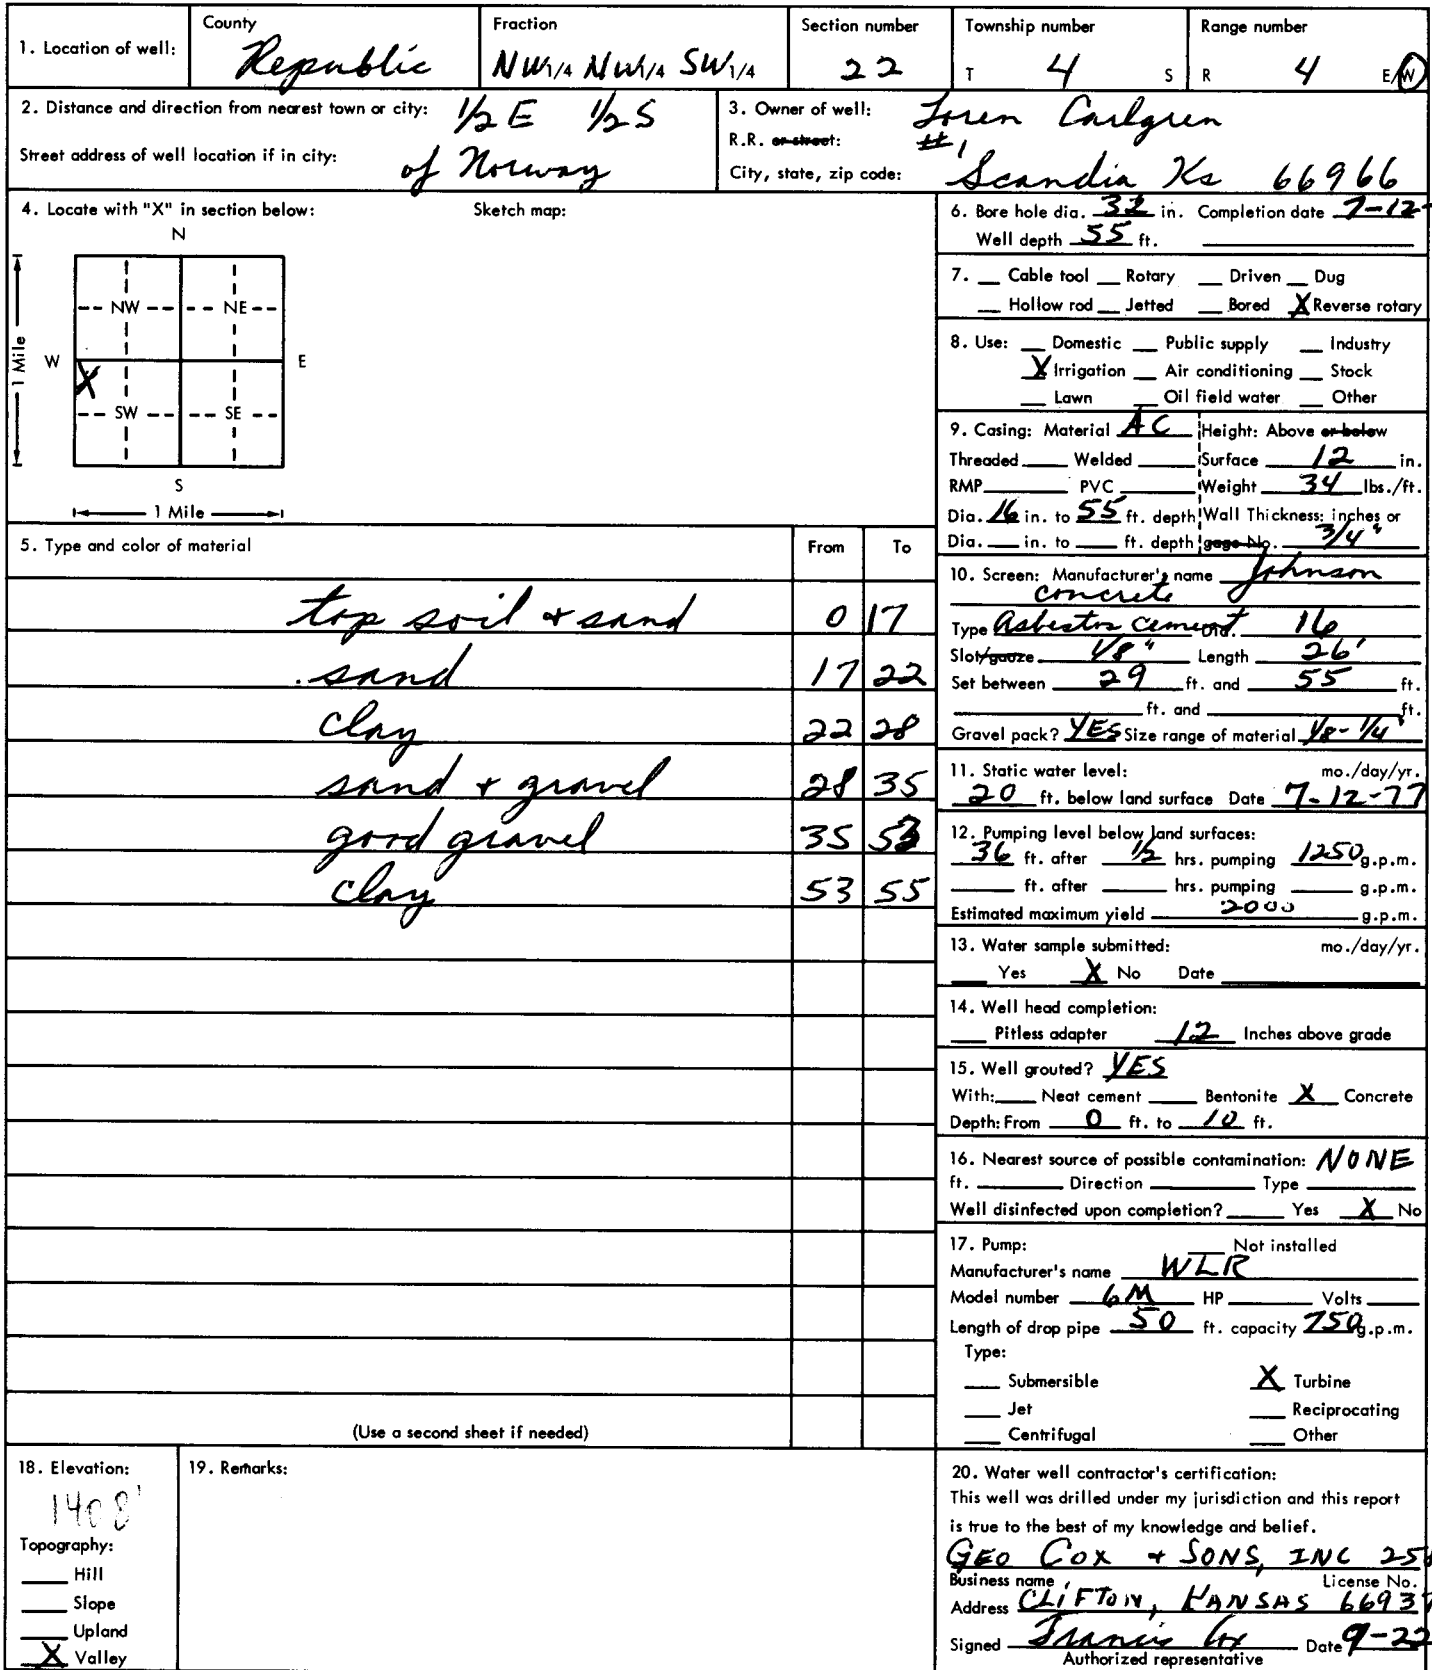 1. Location of well: County Republic Fraction NW1/4 NW1/4 SW1/4 Section number 22 Township number T 4 S Range number R 4 E/W
2. Distance and direction from nearest town or city: 1/2 E 1/2 S
Street address of well location if in city: of Norway
3. Owner of well: Loren Carlgren
R.R. or street: #1
City, state, zip code: Scandia Ks 66966
4. Locate with "X" in section below: Sketch map:
N
NW NE
W E
1 Mile
X
SW SE
S
1 Mile
5. Type and color of material From To
top soil + sand 0 17
sand 17 22
clay 22 28
sand + gravel 28 35
good gravel 35 53
clay 53 55
(Use a second sheet if needed)
6. Bore hole dia. 32 in. Completion date 7-12-
Well depth 55 ft.
7. Cable tool Rotary Driven Dug
Hollow rod Jetted Bored X Reverse rotary
8. Use: Domestic Public supply Industry
X Irrigation Air conditioning Stock
Lawn Oil field water Other
9. Casing: Material AC Height: Above or below
Threaded Welded Surface 12 in.
RMP PVC Weight 34 lbs./ft.
Dia. 16 in. to 55 ft. depth Wall Thickness: inches or
Dia. in. to ft. depth gage No. 3/4"
10. Screen: Manufacturer's name Johnson
concrete
Type Asbestos cement Dia. 16
Slot/gauze 1/8" Length 26'
Set between 29 ft. and 55 ft.
ft. and ft.
Gravel pack? YES Size range of material 1/8-1/4"
11. Static water level: mo./day/yr.
20 ft. below land surface Date 7-12-77
12. Pumping level below land surfaces:
36 ft. after 1/2 hrs. pumping 1250 g.p.m.
ft. after hrs. pumping g.p.m.
Estimated maximum yield 2000 g.p.m.
13. Water sample submitted: mo./day/yr.
Yes X No Date
14. Well head completion:
Pitless adapter 12 Inches above grade
15. Well grouted? YES
With: Neat cement Bentonite X Concrete
Depth: From 0 ft. to 10 ft.
16. Nearest source of possible contamination: NONE
ft. Direction Type
Well disinfected upon completion? Yes X No
17. Pump: Not installed
Manufacturer's name WLR
Model number 6M HP Volts
Length of drop pipe 50 ft. capacity 750 g.p.m.
Type:
Submersible X Turbine
Jet Reciprocating
Centrifugal Other
18. Elevation:
1408'
Topography:
Hill
Slope
Upland
X Valley
19. Remarks:
20. Water well contractor's certification:
This well was drilled under my jurisdiction and this report
is true to the best of my knowledge and belief.
GEO COX + SONS, INC 25
Business name License No.
Address CLIFTON, KANSAS 66937
Signed Francis Cox Date 9-22
Authorized representative